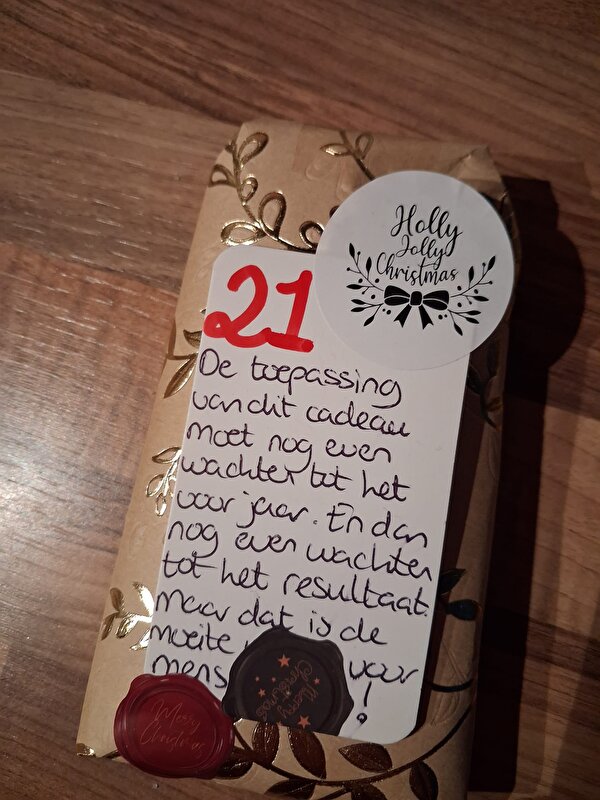 Holly
Jolly
Christmas
21
De toepassing
van dit cadeau
moet nog even
wachten tot het
voorjaar. En dan
nog even wachten
tot het resultaat.
maar dat is de
moeite voor
mens !
Merry
Christmas
Merry
Christmas